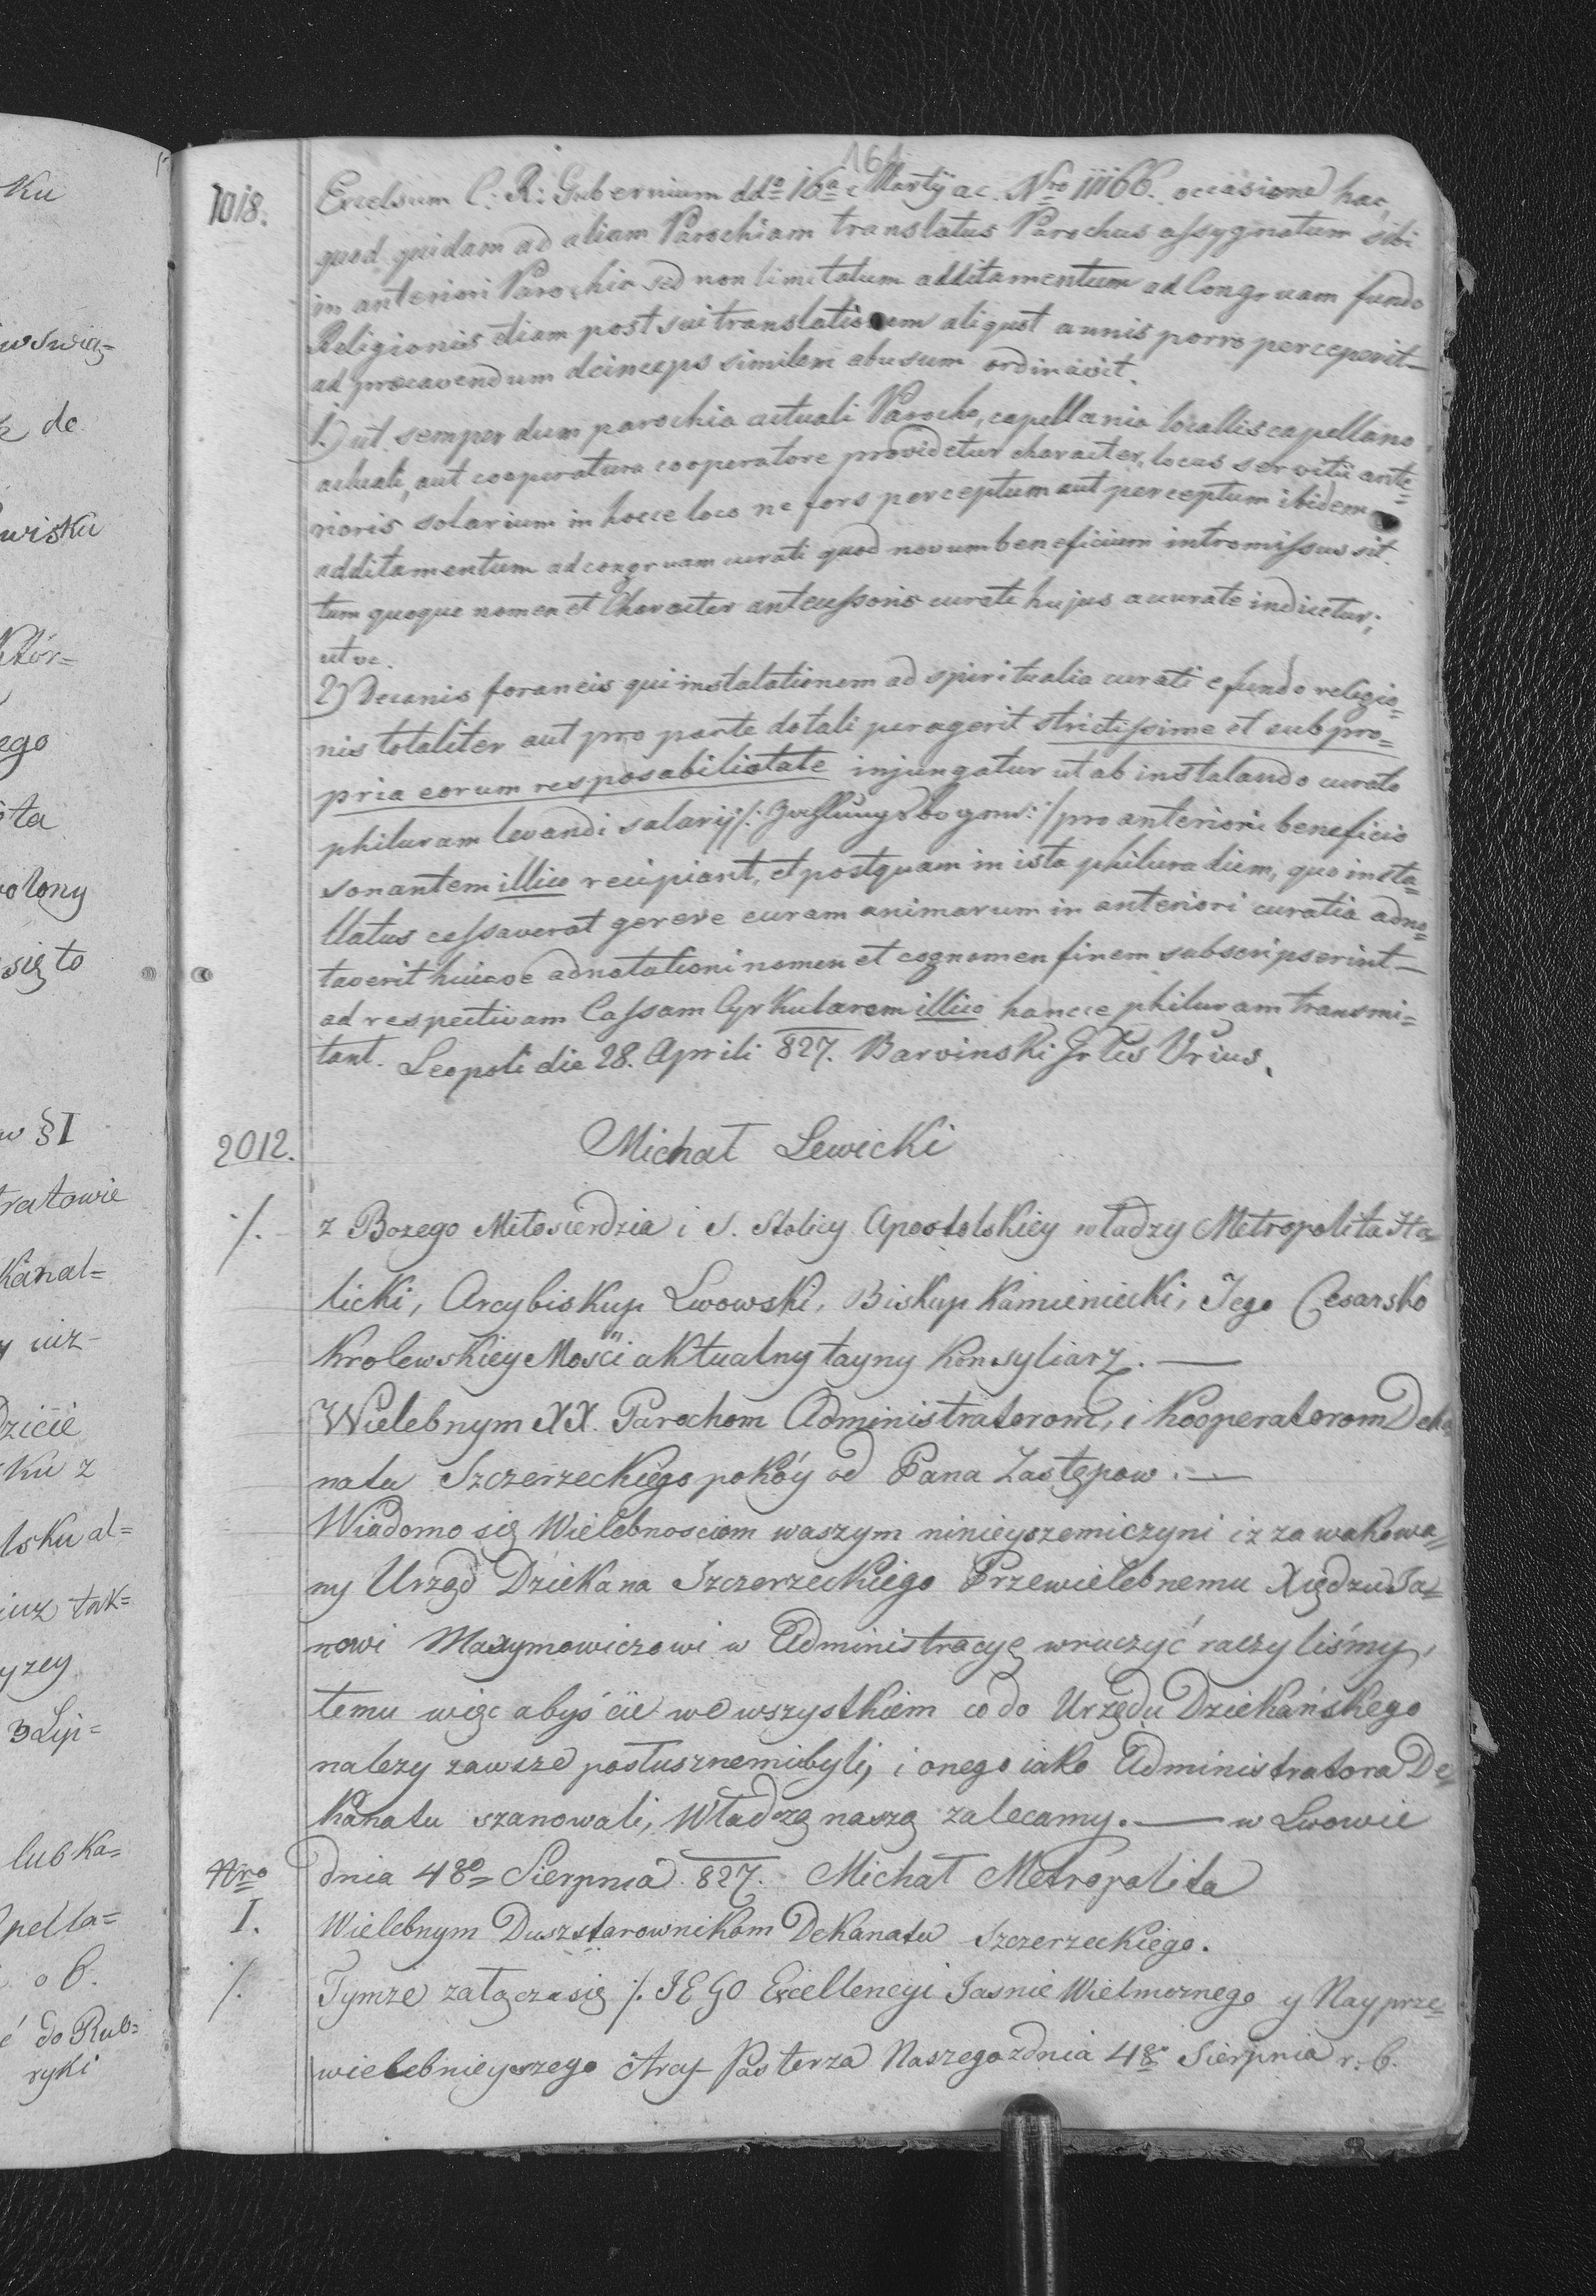 164
1018.
Excelsum C: R: Gubernium ddo 16a Martÿ a c. Nro 11166. occasione hac,
quod quidam ad aliam Parochiam translatus Parochus assygnatum sibi
in anteriori Parochia sed non limitatum additamentum ad Congruam fundo
Religionis etiam post sui translationem aliquot annis porro perceperit—
ad praecavendum deinceps similem abusum ordinavit.
1.) ut semper dum parochia actuali Parocho, capellania locallis capellano
actuali, aut cooperatura cooperatore providetur character, locus servitii ante=
rioris solarium in hocce loco ne fors perceptum aut perceptum ibidem
additamentum ad congruam curati quod novum beneficium intromissus sit.
tum quoque nomen et Character antecessoris curati hujus accurate indicetur;
ut ve.
2) Decanis foraneis qui instalationem ad spiritualia curati e fundo religio=
nis totaliter aut pro parte dotali peragerit strictissime et sub pro=
pria eorum resposabiliatate injungatur ut ab instalando curato
philuram levandi salarij /: Zahlungsbogen :/ pro anteriori beneficio
sonantem illico recipiant, et postquam in ista philura diem, quo insta=
llatus cessaverat gerere curam animarum in anteriori curatia adno=
taverit huicve adnotationi nomen et cognomen finem subscripserint—
ad respectivam Cassam Cyrkularem illico hancce philuram transmi=
tant. Leopoli die 28. Aprili 827. Barvinski Gr lis Vrius.
2012.
Michał Lewicki
./. z Bozego Miłosierdzia i S. Stolicy Apostolskiey władzy Metropolita Ha=
licki, Arcybiskup Lwowski, Biskup Kamieniecki, Jego Cesarsko
Krolewskiey Mości aktualny tayny Konsyliarz. —
Wielebnym XX. Parochom Administratorom, i Kooperatorom Deka
natu Szczerzeckiego pokóy od Pana Zastępow. —
Wiadomo się Wielebnosciom waszym ninieyszemi czyni iz zawakowa=
ny Urząd Dziekana Szczerzeckiego Przewielebnemu Xiędzu Ja=
nowi Maxymowiczowi w Administracyę wruczyć raczyliśmy,
temu więc abyście we wszystkiem co do Urzędu Dziekańskego
nalezy zawsze posłusznemi byli, i onego iako Administratora De=
kanatu szanowali, Władzą naszą zalecamy. — w Lwowie
dnia 48o Sierpnia 827. Michał Metropolita
Nro
I.
Wielebnym Duszstarownikom Dekanatu Szczerzeckiego.
./. Tymze załącza się ./. JEGO Excellencyi Jasnie Wielmoznego y Nayprze=
wielebnieyszego Arcy Pasterza Naszego z dnia 48o Sierpnia r. b.
ku
k de
wisku
Któr=
ego
ta
się to
w §I
ratowie
Kanal=
dzicie
ku z
lsku al=
iuz tak=
yzey
3 Lip=
lub Ka=
pella=
o b.
é do Rub=
ryki